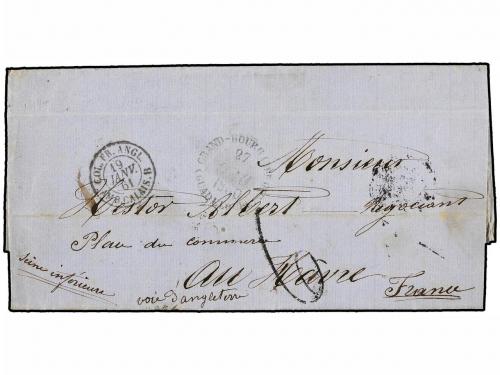 COL. FR. ANGL.
19
JANV.
61
CALAIS
GRAND-BOURG
27
Monsieur
Nestor Albert Négociant
Place du commerce
au Hâvre
Seine inférieure
voie d'angleterre
France